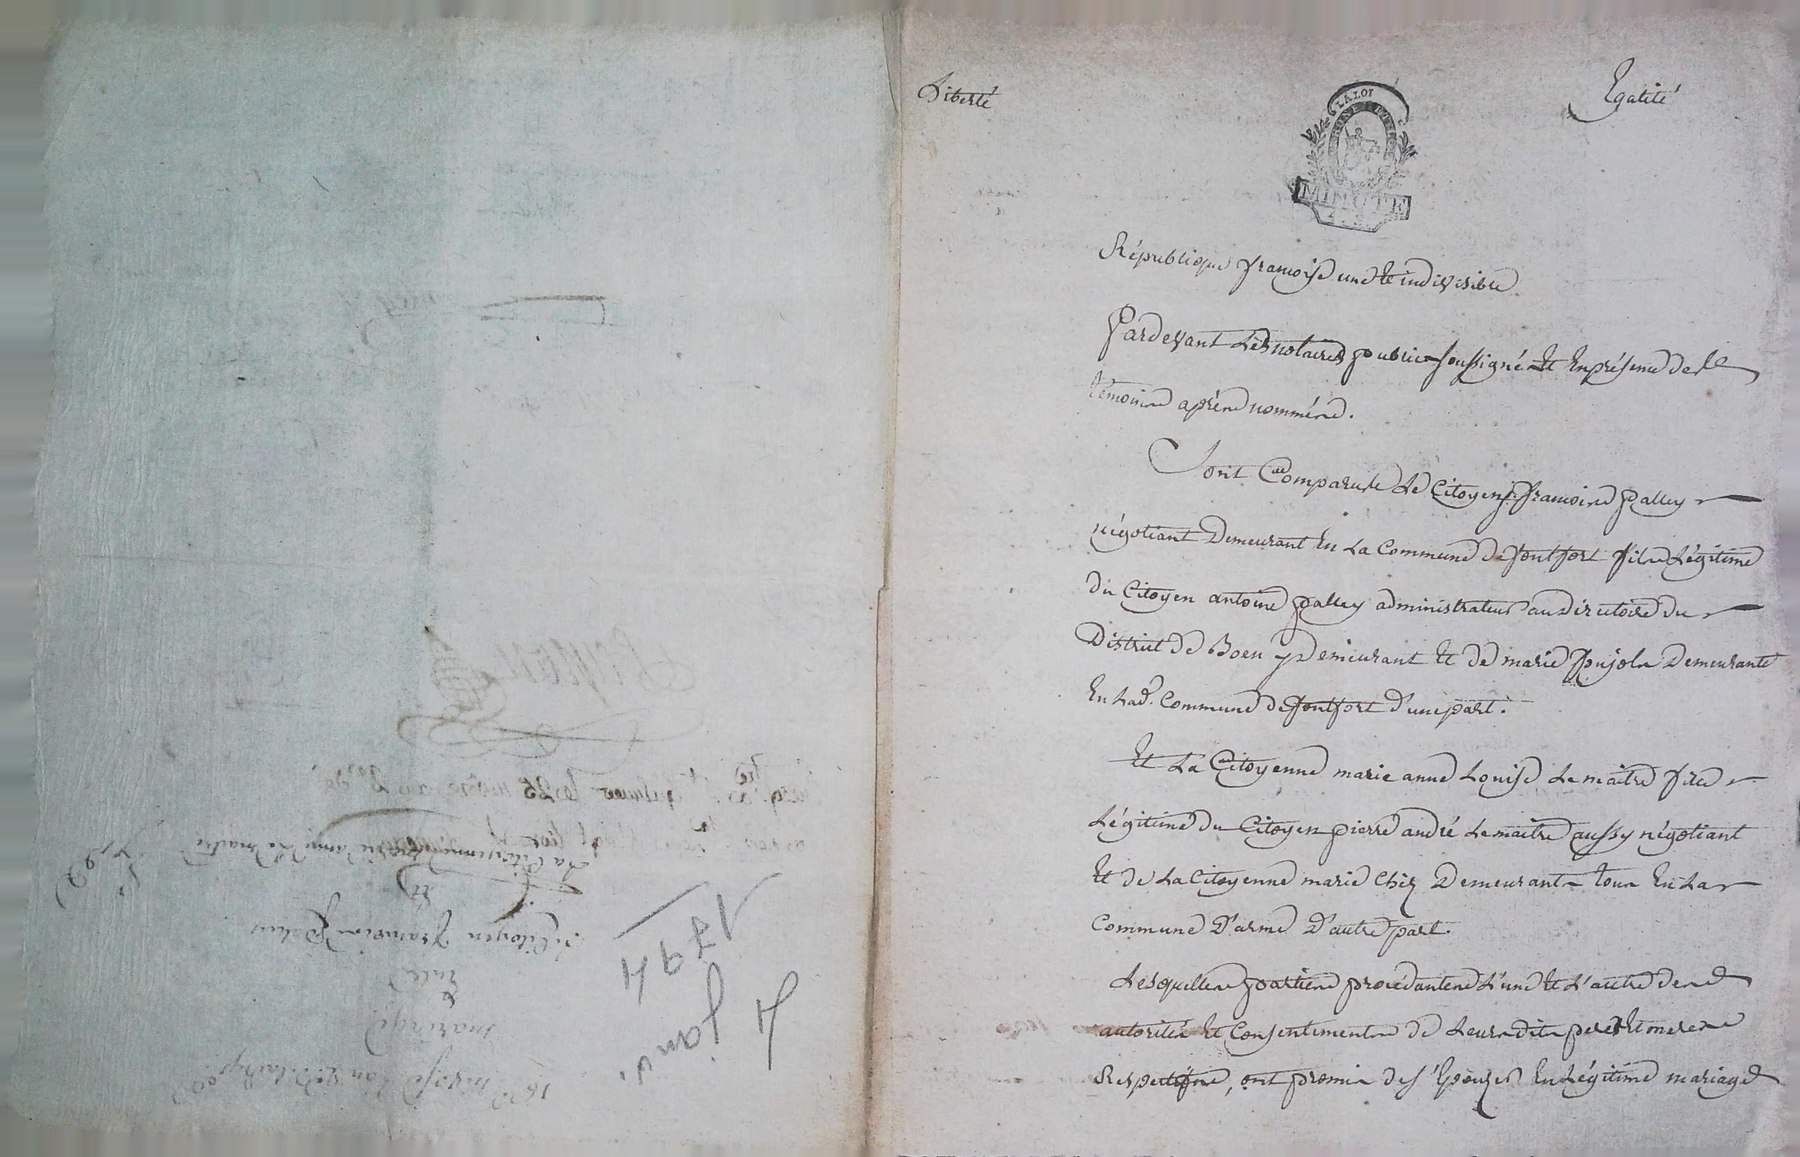 Liberté
Egalité
LA LOI
MINUTE
République françoise une et indivisible
Pardevant Les notaires public soussigné Et En présence des
témoins aprés nommés.
Sont Comparus Le Citoyen françois palley
négotiant Demeurant En La Commune de fontfort fils Légitime
du Citoyen antoine palley administrateur au Directoire du
District de Boen y Demeurant Et de marie Demeurante
En Lad. Commune de fontfort d'une part.
Et La Citoyenne marie anne Louise Le maitre fille
Légitime du Citoyen pierre andré Le maitre aussy négotiant
Et de La Citoyenne marie Chez Demeurants tous En La
Commune D'arme D'autre part.
Lesquelles parties procédantes L'une Et L'autre des
autorités Et Consentements de Leurs dits peres Et meres
Respectifs, ont promis de s'Epouzer En Légitime mariage
16 nivose l'an 2e
mariage
Entre
Le Citoyen françois palley
Et
La Citoyenne marie anne Le maitre
4 janv.
1794